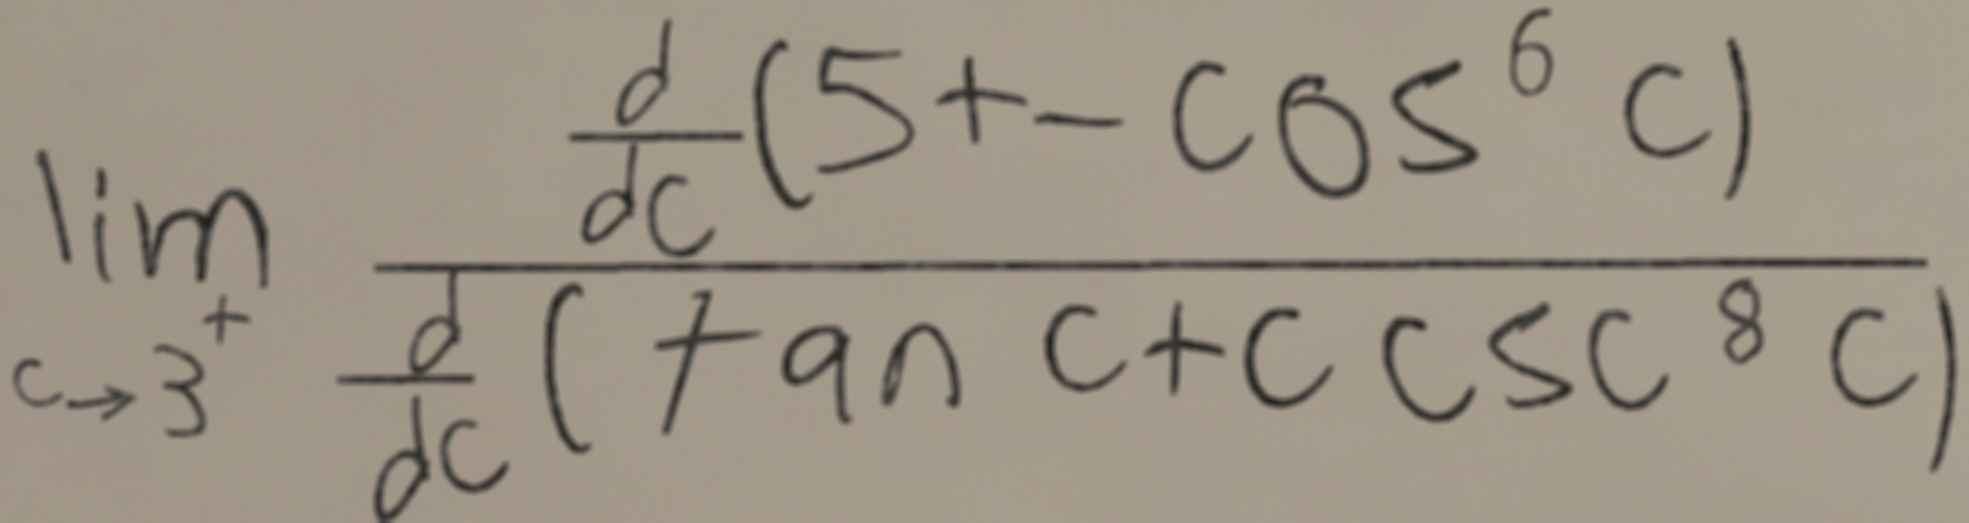 \lim_{c \to 3^+} \frac{\frac{d}{dc}(5+-\cos^6 c)}{\frac{d}{dc}(\tan c+c\csc^8 c)}